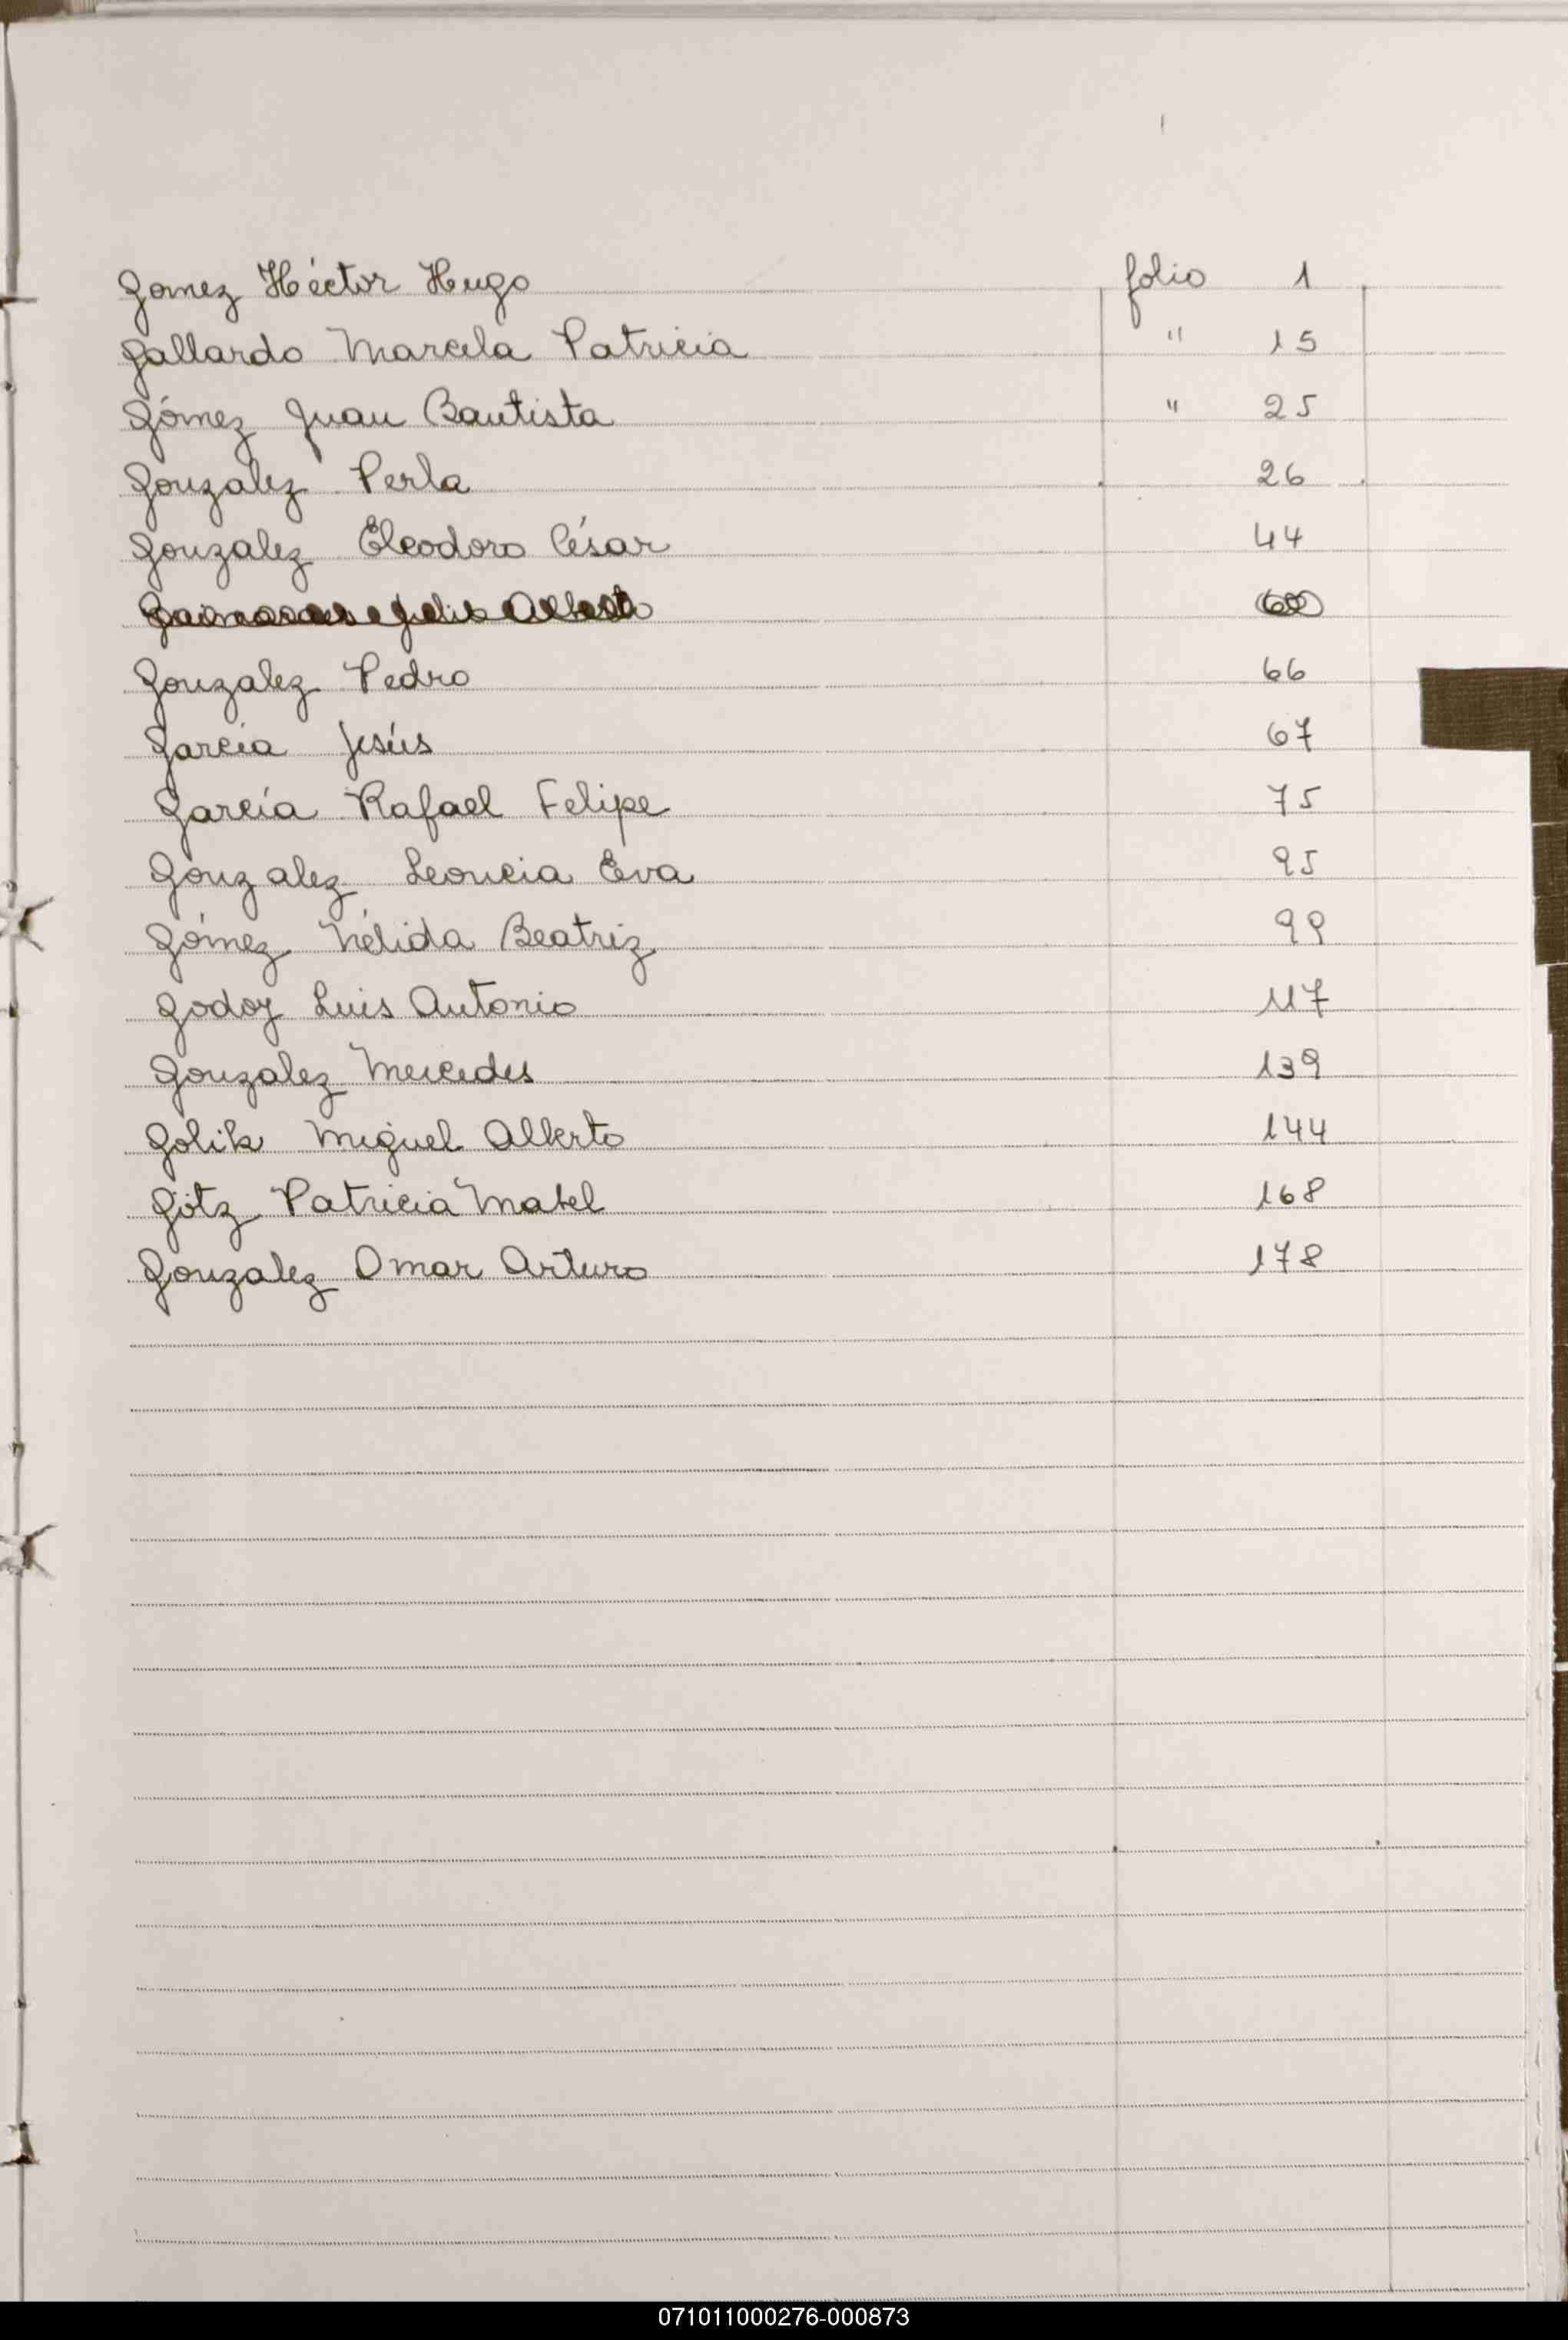 Gomez Héctor Hugo folio 1
Gallardo Marcela Patricia " 15
Gómez Juan Bautista " 25
Gonzalez Perla 26
Gonzalez Eleodoro César 44
Gonzalez Pedro 66
García Jesús 67
García Rafael Felipe 75
Gonzalez Leoncia Eva 95
Gómez Nélida Beatriz 99
Godoy Luis Antonio 117
Gonzalez Mercedes 139
Golik Miguel Alberto 144
Götz Patricia Mabel 168
Gonzalez Omar Arturo 178
071011000276-000873